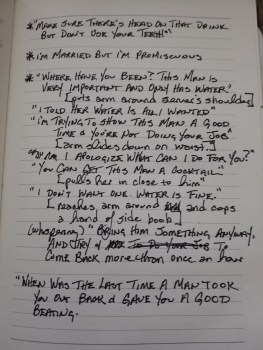 *"MAKE SURE THERE'S HEAD ON THAT DRINK
BUT DON'T USE YOUR TEETH!"
*I'M MARRIED BUT I'M PROMISCUOUS
*"WHERE HAVE YOU BEEN? THIS MAN IS
VERY IMPORTANT AND ONLY HAS WATER"
[puts arm around servers shoulder]
"I TOLD HER WATER IS ALL I WANTED"
"I'M TRYING TO SHOW THIS MAN A GOOD
TIME & YOU'RE NOT DOING YOUR JOB"
[arm slides down on waist.]
I APOLOGIZE WHAT CAN I DO FOR YOU?"
"YOU CAN GET THIS MAN A COCKTAIL"
[pulls her in close to him]
"I DON'T WANT ONE WATER IS FINE."
[reaches arm around and cops
a hand of side boob]
(whispering) "BRING HIM SOMETHING ANYWAY.
AND TRY & TO DO YOUR JOB TO
COME BACK MORE THAN ONCE AN HOUR
"WHEN WAS THE LAST TIME A MAN TOOK
YOU OUT BACK & GAVE YOU A GOOD
BEATING.